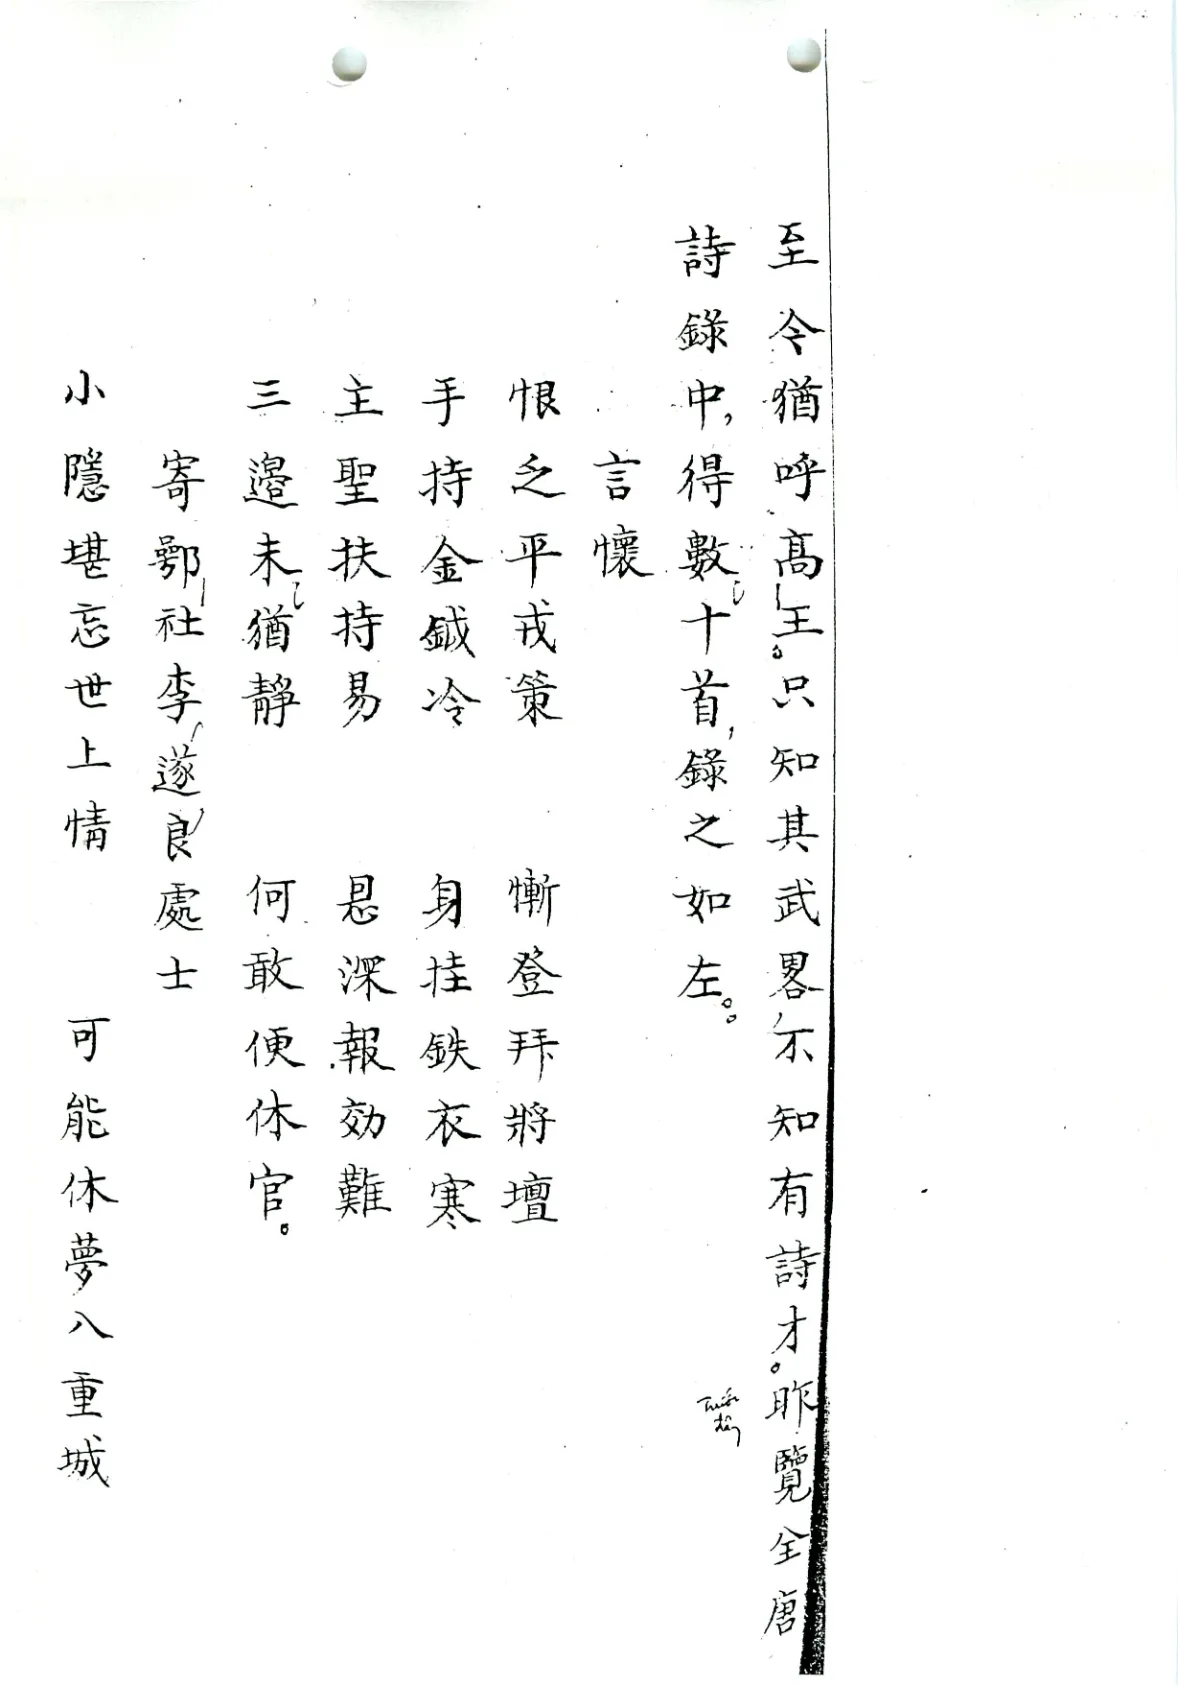 至令猶呼高王。只知其武畧不知有詩才。昨覽全唐
詩錄中,得數十首,錄之如左。。
言懷
恨乏平戎策 慚登拜將壇
手持金鉞冷 身挂鉄衣寒
主聖扶持易 恩深報効難
三邉未猶靜 何敢便休官。
寄鄠社李遂良處士
小隱堪忘世上情 可能休夢入重城